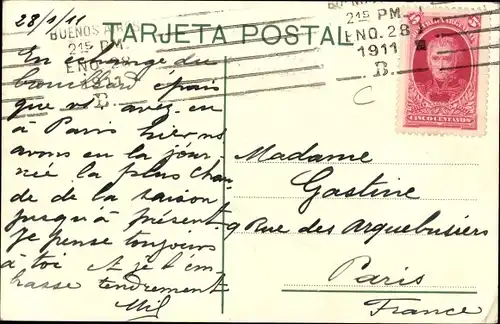 28/1/11
TARJETA POSTAL
BUENOS AIRES
215 PM.
ENO. 28
1911
B.
215 PM.
ENO. 28
1911
B.
5 5
CINCO CENTAVOS
En échange du
brouillard épais
que vs avez eu
à Paris hier ns
avons eu la jour
née la plus chau
de de la saison
jusqu'à présent.
Je pense toujours
à toi et je t'em
brasse tendrement
Mil
Madame
Gastine
9 Rue des Arquebusiers
Paris
France
C